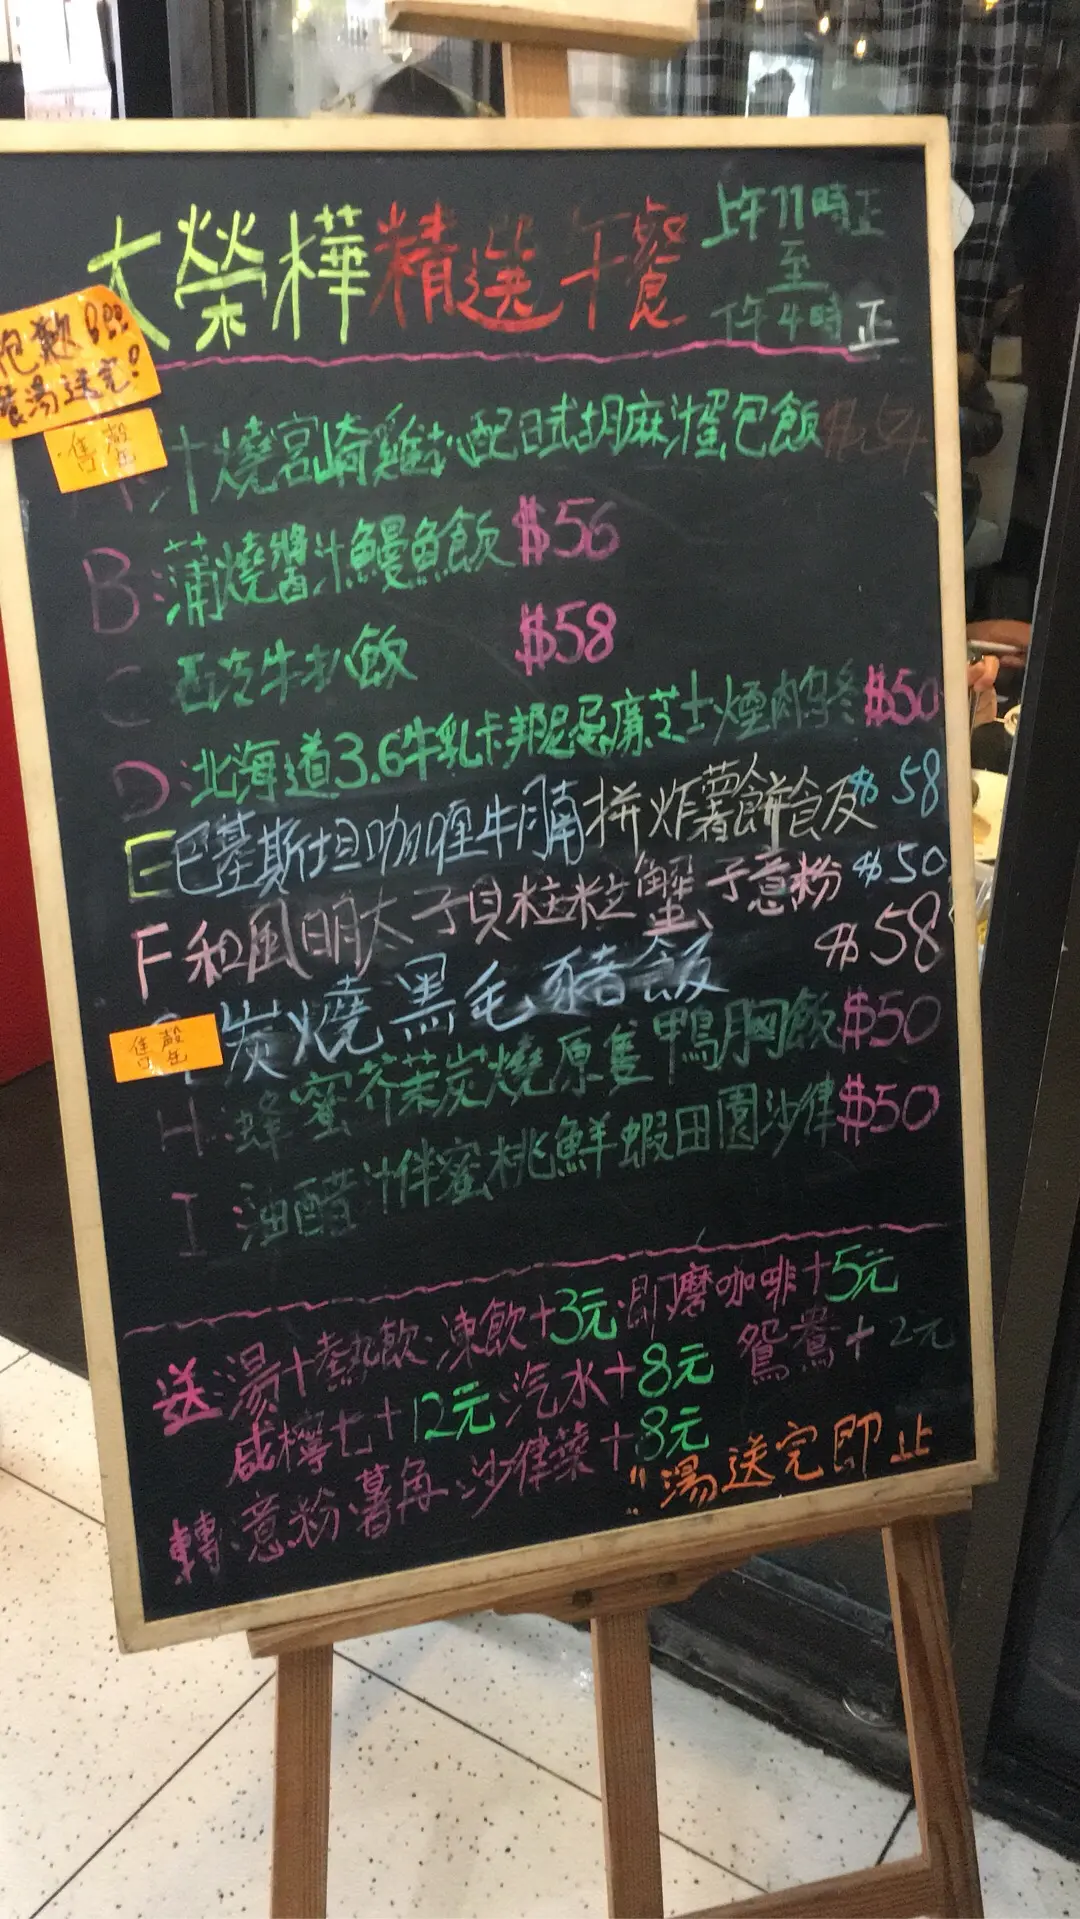 大榮樺精選午餐
上午11時正
至
下午4時正
抱歉
餐湯送完!
售罄
汁燒宮崎雞扒配日式胡麻汁蛋包飯$54
B:蒲燒醬汁鰻魚飯$56
C 西冷牛扒飯 $58
D:北海道3.6牛乳卡邦尼忌廉芝士煙肉烏冬$50
E巴基斯坦咖喱牛腩拼炸薯餅飯$58
F和風明太子貝柱粒蟹子意粉$50
炭燒黑毛豬飯 $58
售罄
H:蜂蜜芥茉炭燒原隻鴨胸飯$50
I 油醋汁伴蜜桃鮮蝦田園沙律$50
送:湯+熱飲·凍飲+3元·即磨咖啡+5元
咸檸七+12元·汽水+8元 鴛鴦+2元
轉:意粉·薯角·沙律菜+8元
"湯送完即止